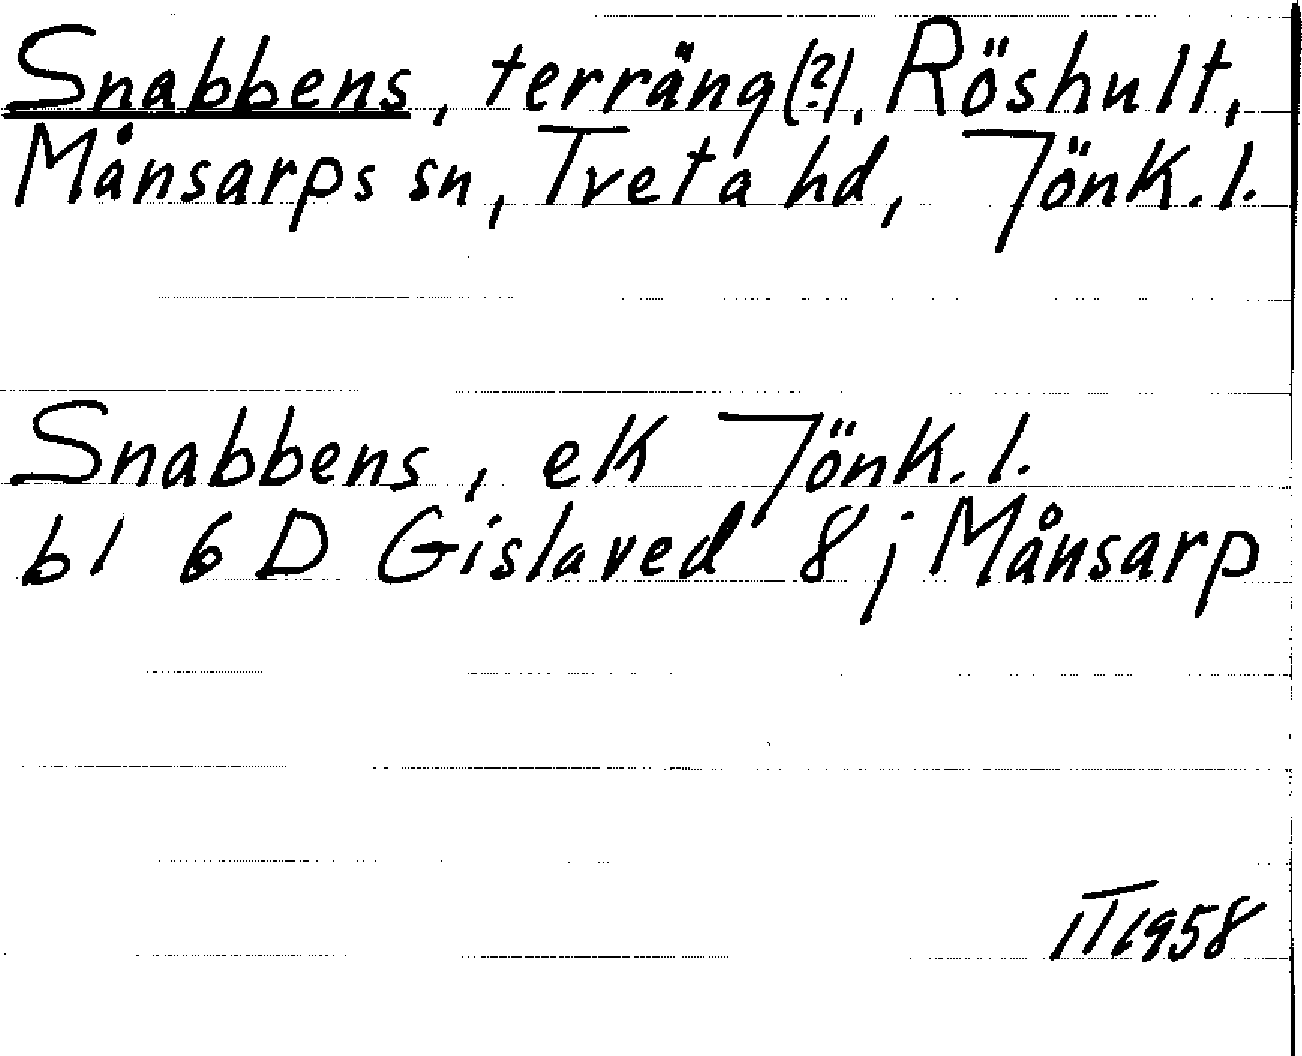 Snabbens, terräng(?), Röshult,
Månsarps sn, Tveta hd, Jönk. l.
Snabbens, ek Jönk. l.
bl 6 D Gislaved 8 j Månsarp
IT 1958